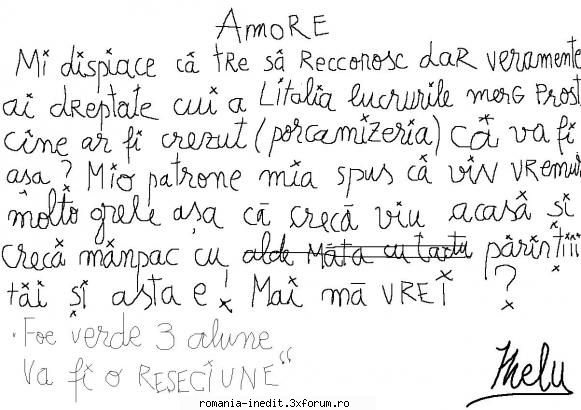 AMORE
Mi dispiace că tRe să Recconosc daR veramente
ai dReptate cui a Litalia lucrurile meRG PRost
cine ar fi crezut (porcamizeria) că va fi
așa? Mio patrone mia spus că vin vRemuri
molto grele așa că crecă viu acasă și
crecă mânpac cu alde Măta cu tactu părințiii
tăi și asta e! Mai mă VREI ?
"Foe verde 3 alune
Va fi o RESECIUNE"
Ghelu
romania-inedit.3xforum.ro